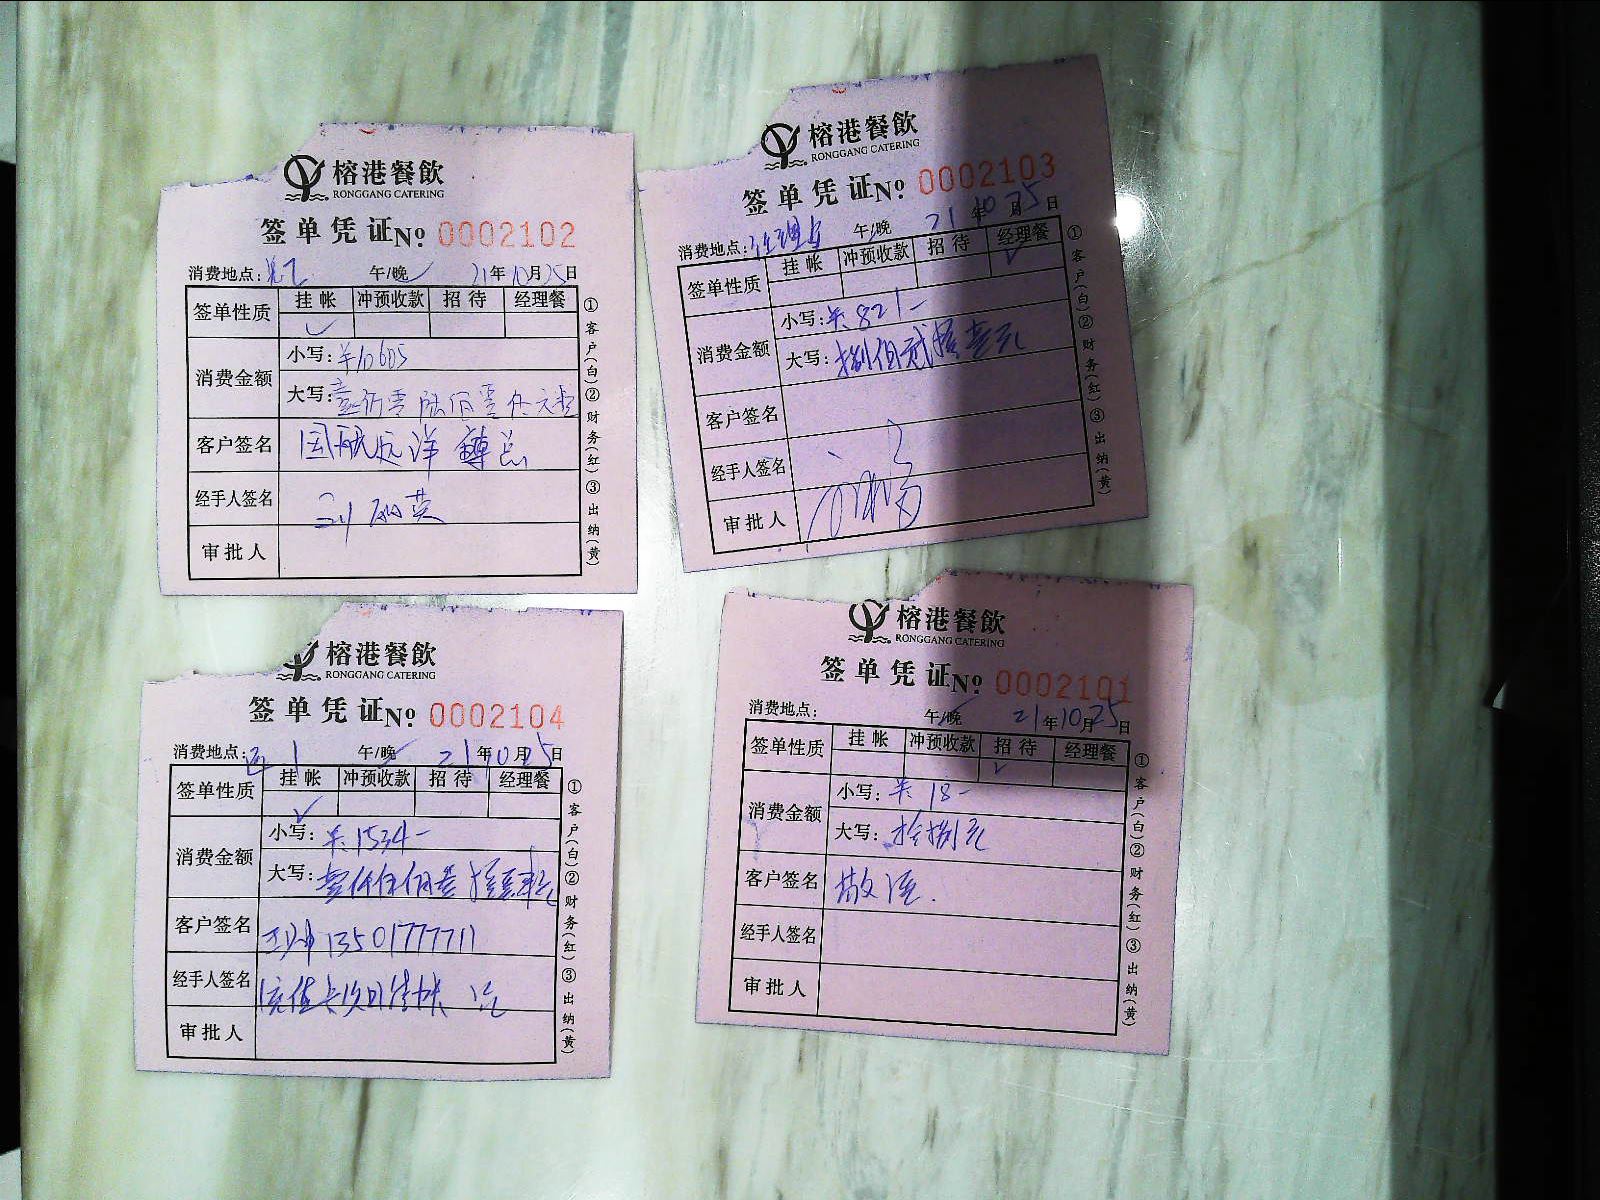 榕港餐飲
RONGGANG CATERING
签单凭证№ 0002102
消费地点: 午/晚✓ 21年10月25日
签单性质 挂帐 冲预收款 招待 经理餐
✓
消费金额
小写:¥10605
大写:
客户签名 国航远洋 总
经手人签名 刘丽英
审批人
①客户(白)②财务(红)③出纳(黄)
榕港餐飲
RONGGANG CATERING
签单凭证№ 0002103
消费地点: 午/晚 21年10月25日
签单性质 挂帐 冲预收款 招待 经理餐
✓
消费金额
小写:¥821-
大写:捌佰贰拾壹元
客户签名
经手人签名
审批人
①客户(白)②财务(红)③出纳(黄)
榕港餐飲
RONGGANG CATERING
签单凭证№ 0002104
消费地点: 1 午/晚✓ 21年10月25日
签单性质 挂帐 冲预收款 招待 经理餐
✓
消费金额
小写:¥1534-
大写:壹仟伍佰叁拾肆元
客户签名 13501777711
经手人签名
审批人
①客户(白)②财务(红)③出纳(黄)
榕港餐飲
RONGGANG CATERING
签单凭证№ 0002101
消费地点: 午/晚✓ 21年10月25日
签单性质 挂帐 冲预收款 招待 经理餐
✓
消费金额
小写:¥18-
大写:拾捌元
客户签名 散
经手人签名
审批人
①客户(白)②财务(红)③出纳(黄)